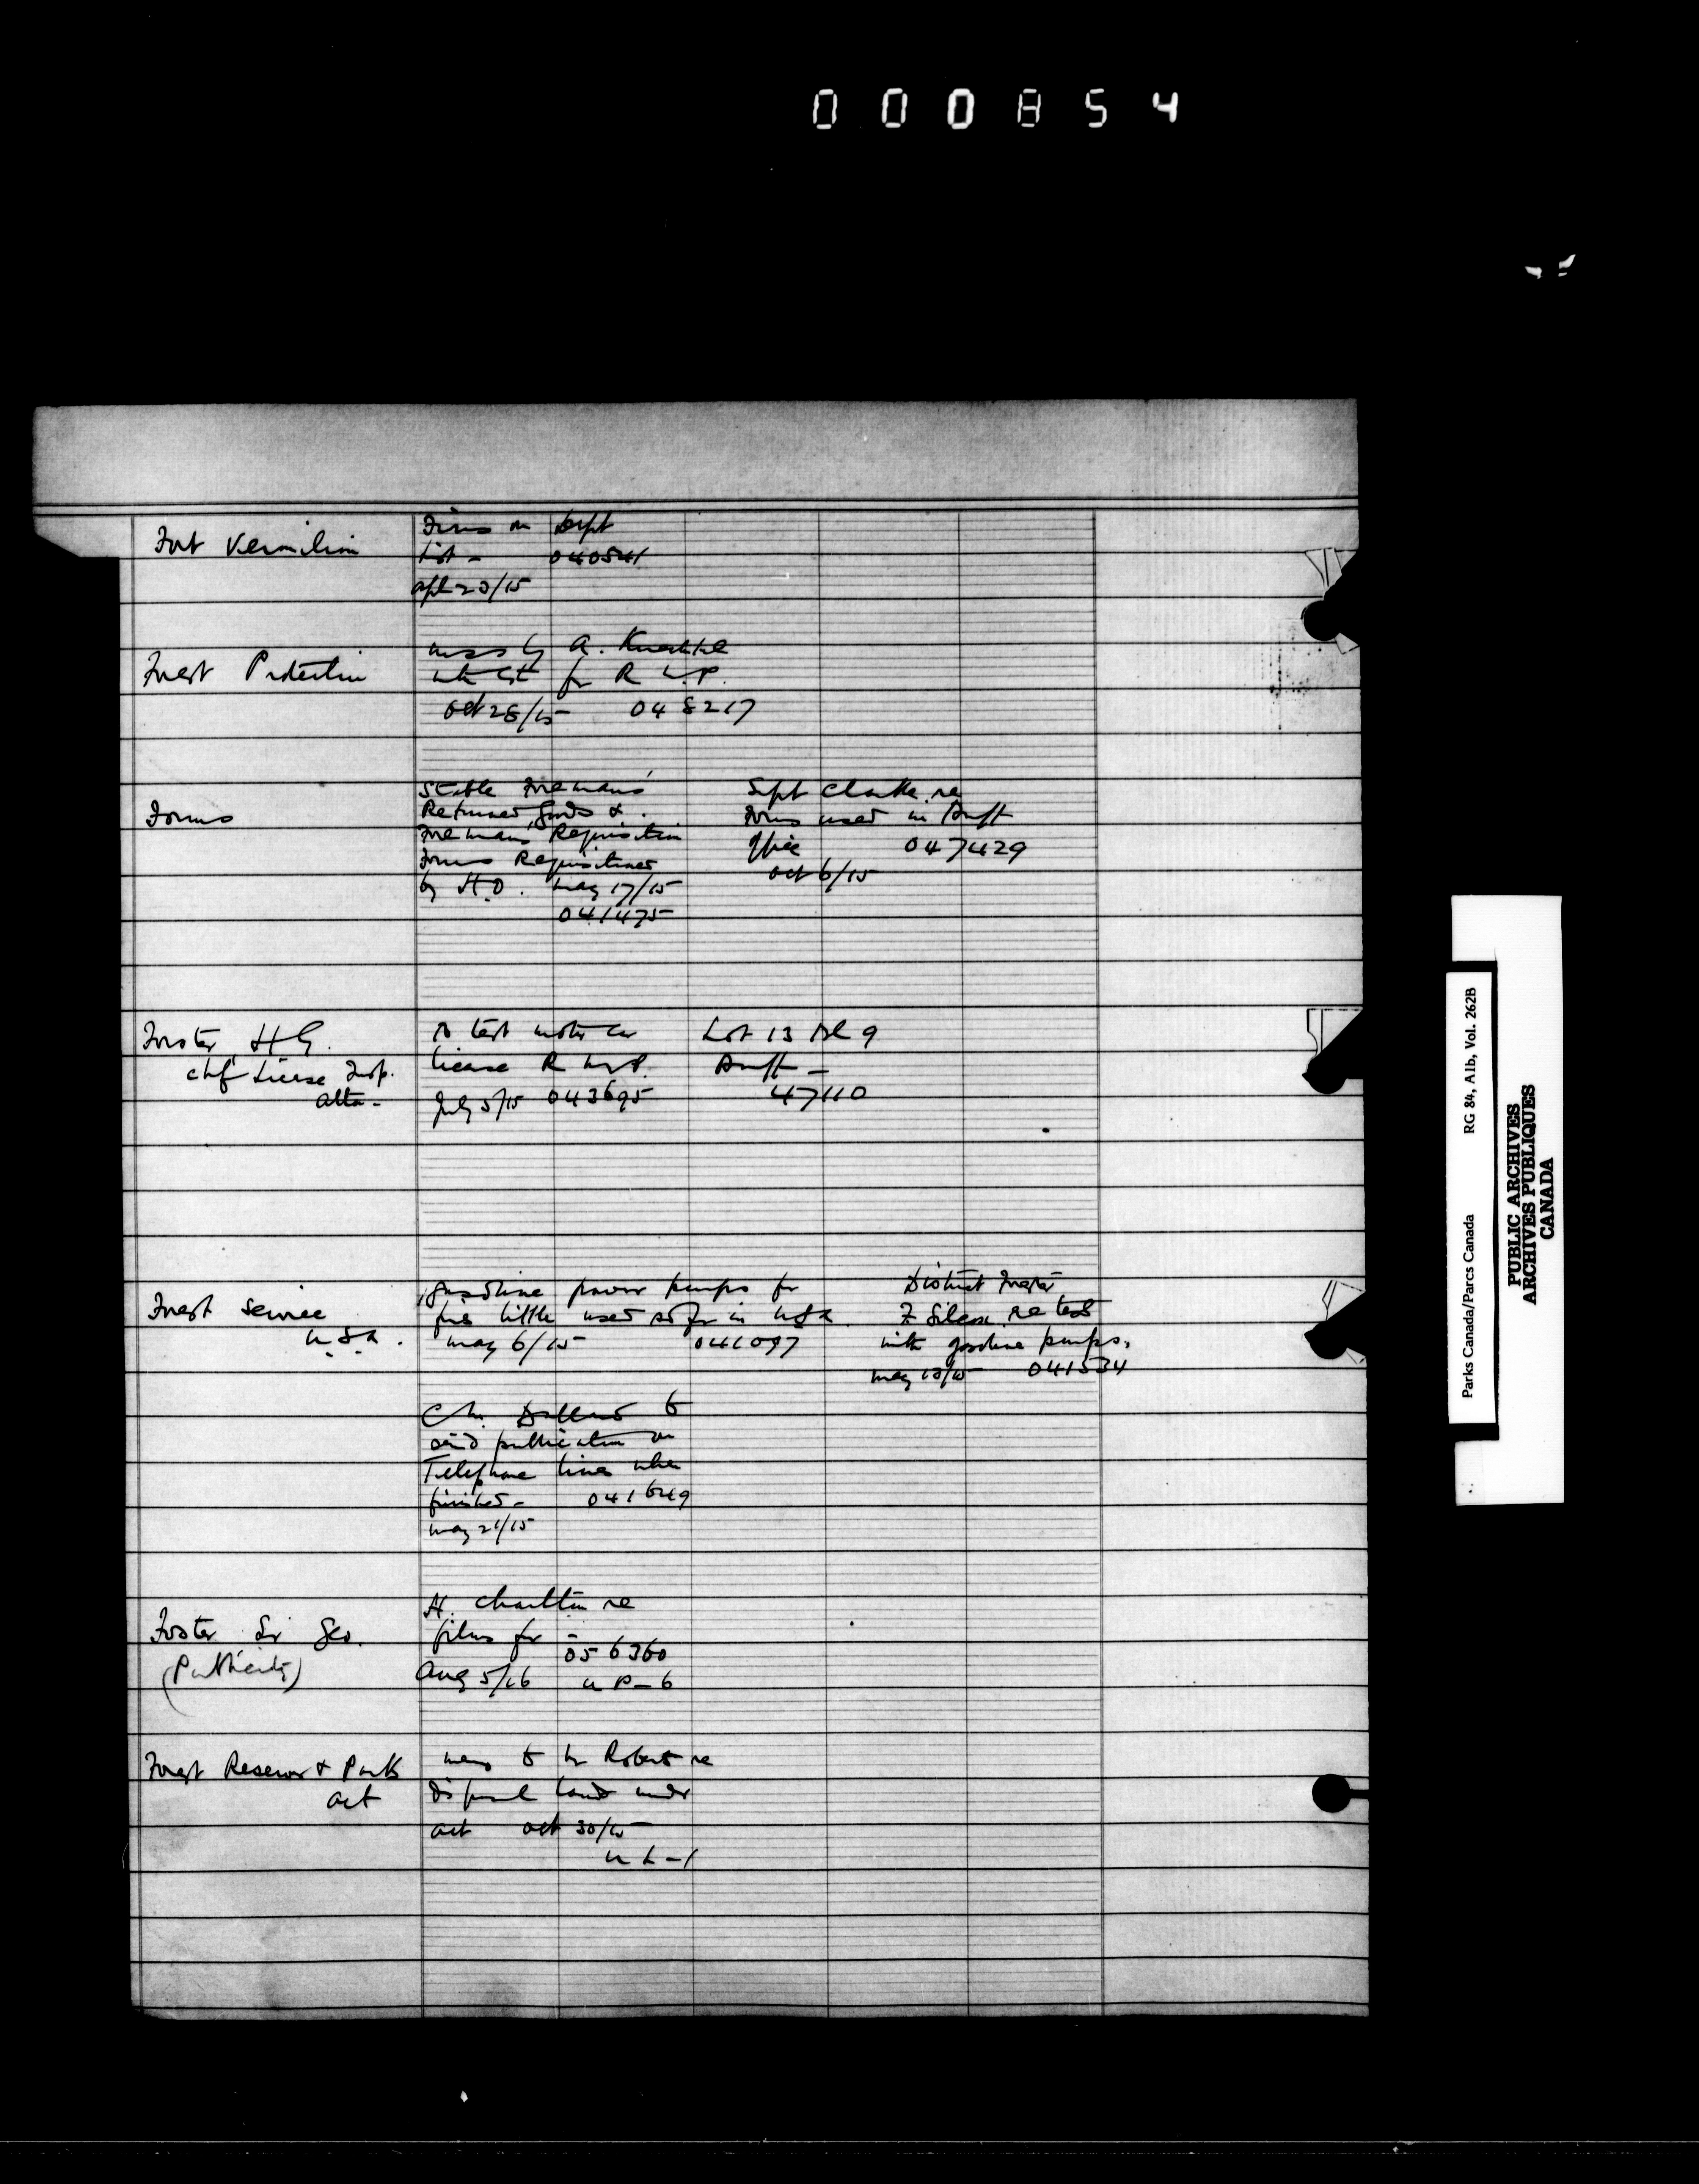 000854
Fort Vermilion
Firms on Dept
List - 040541
Apl 20/15
Forest Protection
by A. Knechtel
for R M P.
Oct 28/15 048217
Forms
Stable Foreman's
Returned goods &
Foreman's Requisition
Forms Requisitioned
by H.O. May 17/15
041475
Supt Clarke re
forms used in Banff
Office 047429
Oct 6/15
Foster, H G.
Chf License Insp.
Alta -
to test motor car
license R M P.
July 5/15 043695
Lot 13 Bl 9
Banff -
47110
Forest Service
U.S.A.
gasoline power pumps for
fire little used so far in USA.
May 6/15 041097
District Forester
F. Silcox re test
with gasoline pumps.
May 18/15 041534
to
send publication on
Telephone lines when
finished - 041649
May 21/15
Foster Sir Geo.
(Publicity)
H. Charlton re
films for -
056360
Aug 5/16 U P-6
Forest Reserves & Parks
Act
memo to Mr Roberts re
disposal land under
Act Oct 30/15
U L-1
Parks Canada/Parcs Canada RG 84, A1b, Vol. 262B
PUBLIC ARCHIVES
ARCHIVES PUBLIQUES
CANADA